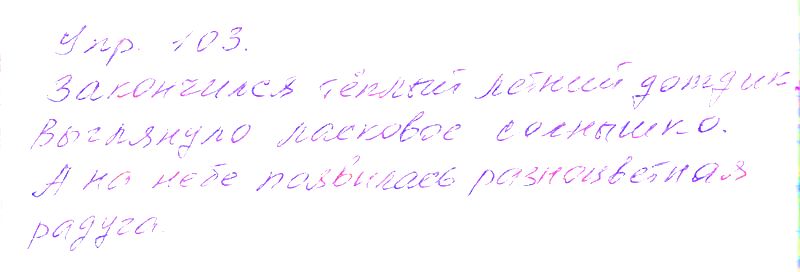 Упр. 103.
Закончился тёплый летний дождик.
Выглянуло ласковое солнышко.
А на небе появилась разноцветная
радуга.